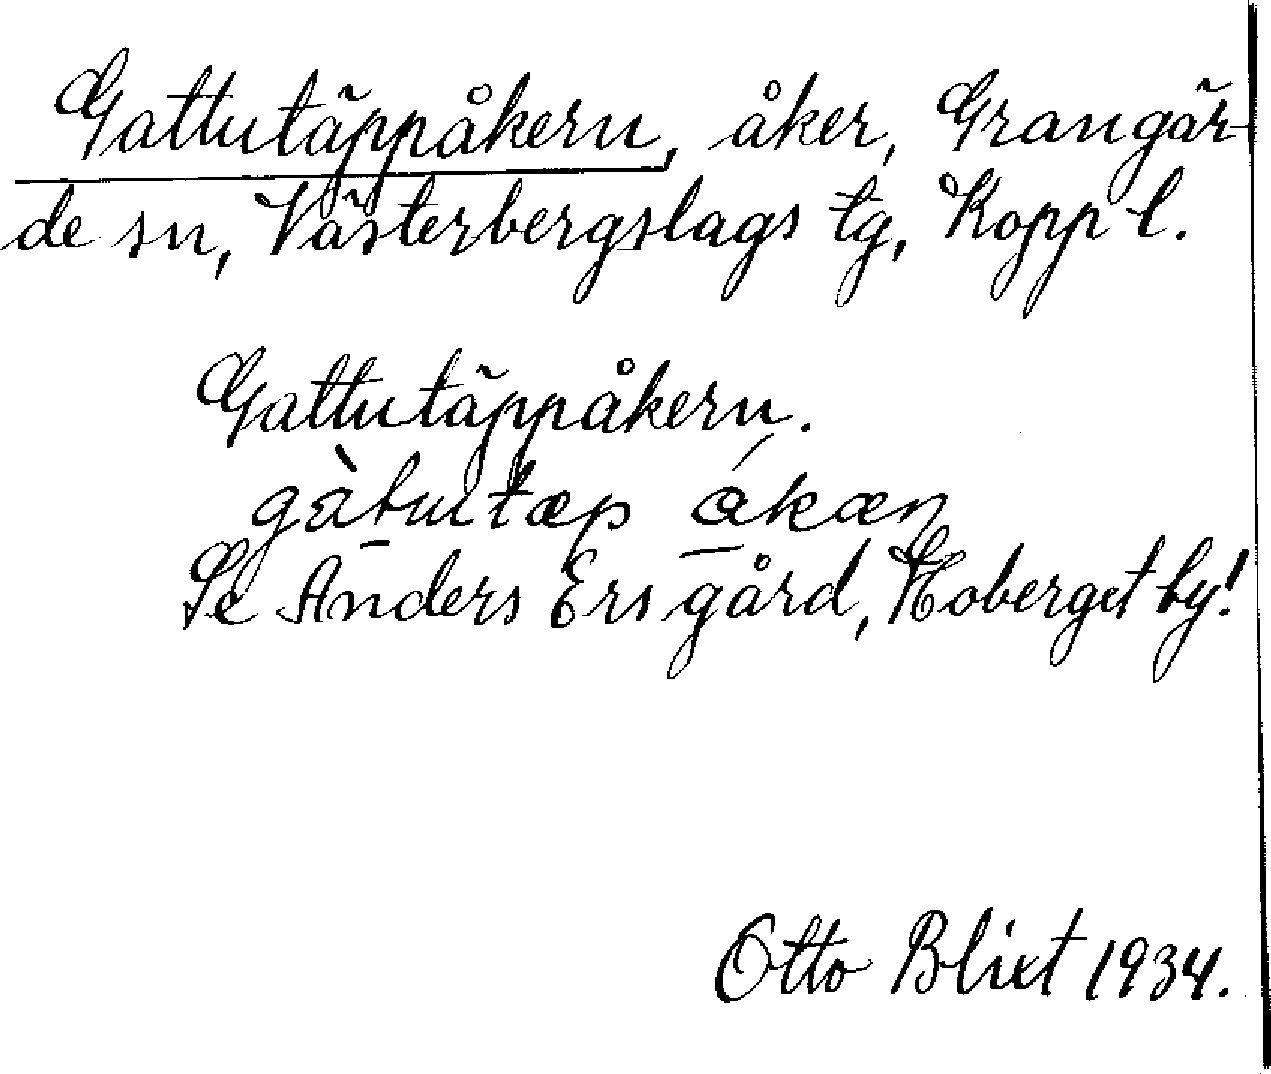 Gattutäppåkern, åker, Grangär-
de sn, Västerbergslags tg, Kopp l.
Gattutäppåkern.
gàtutæp åkæn
Se Anders Ers gård, Noberget by!
Otto Blixt 1934.